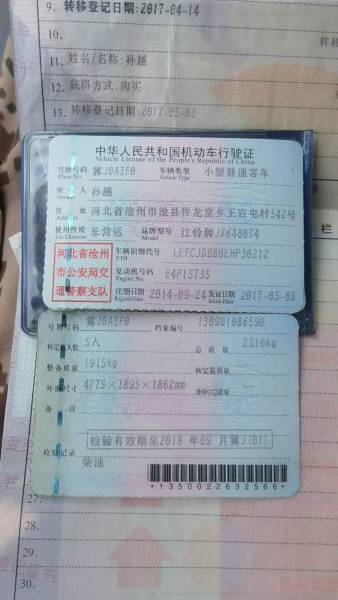 9. 转移登记日期:2017-04-14
10.
转移
11. 姓名/名称:孙越
12. 获得方式:购买
13. 转移登记日期 2017-05-03
栏
中华人民共和国机动车行驶证
Vehicle License of the People's Republic of China
号牌号码 冀J0A3F0 车辆类型 小型普通客车
Plate No. Vehicle Type
所有人 孙越
Owner
住址 河北省沧州市沧县仵龙堂乡王官屯村542号
Address
使用性质 非营运 品牌型号 江铃牌JX6480T4
Use Character Model
河北省沧州市公安局交通警察支队
车辆识别代号 LEFCJDBB0EHP30212
VIN
发动机号码 E4P15735
Engine No.
注册日期 2014-09-24 发证日期 2017-05-03
Register Date Issue Date
号牌号码 冀J0A3F0 档案编号 130901086590
核定载人数 5人 总质量 2510kg
整备质量 1915kg 核定载质量
外廓尺寸 4775×1895×1862mm 准牵引总质量
备注
检验有效期至2018年09月冀J(01)
检验记录
柴油
*1350022632566*
27.
28.
29.
30.